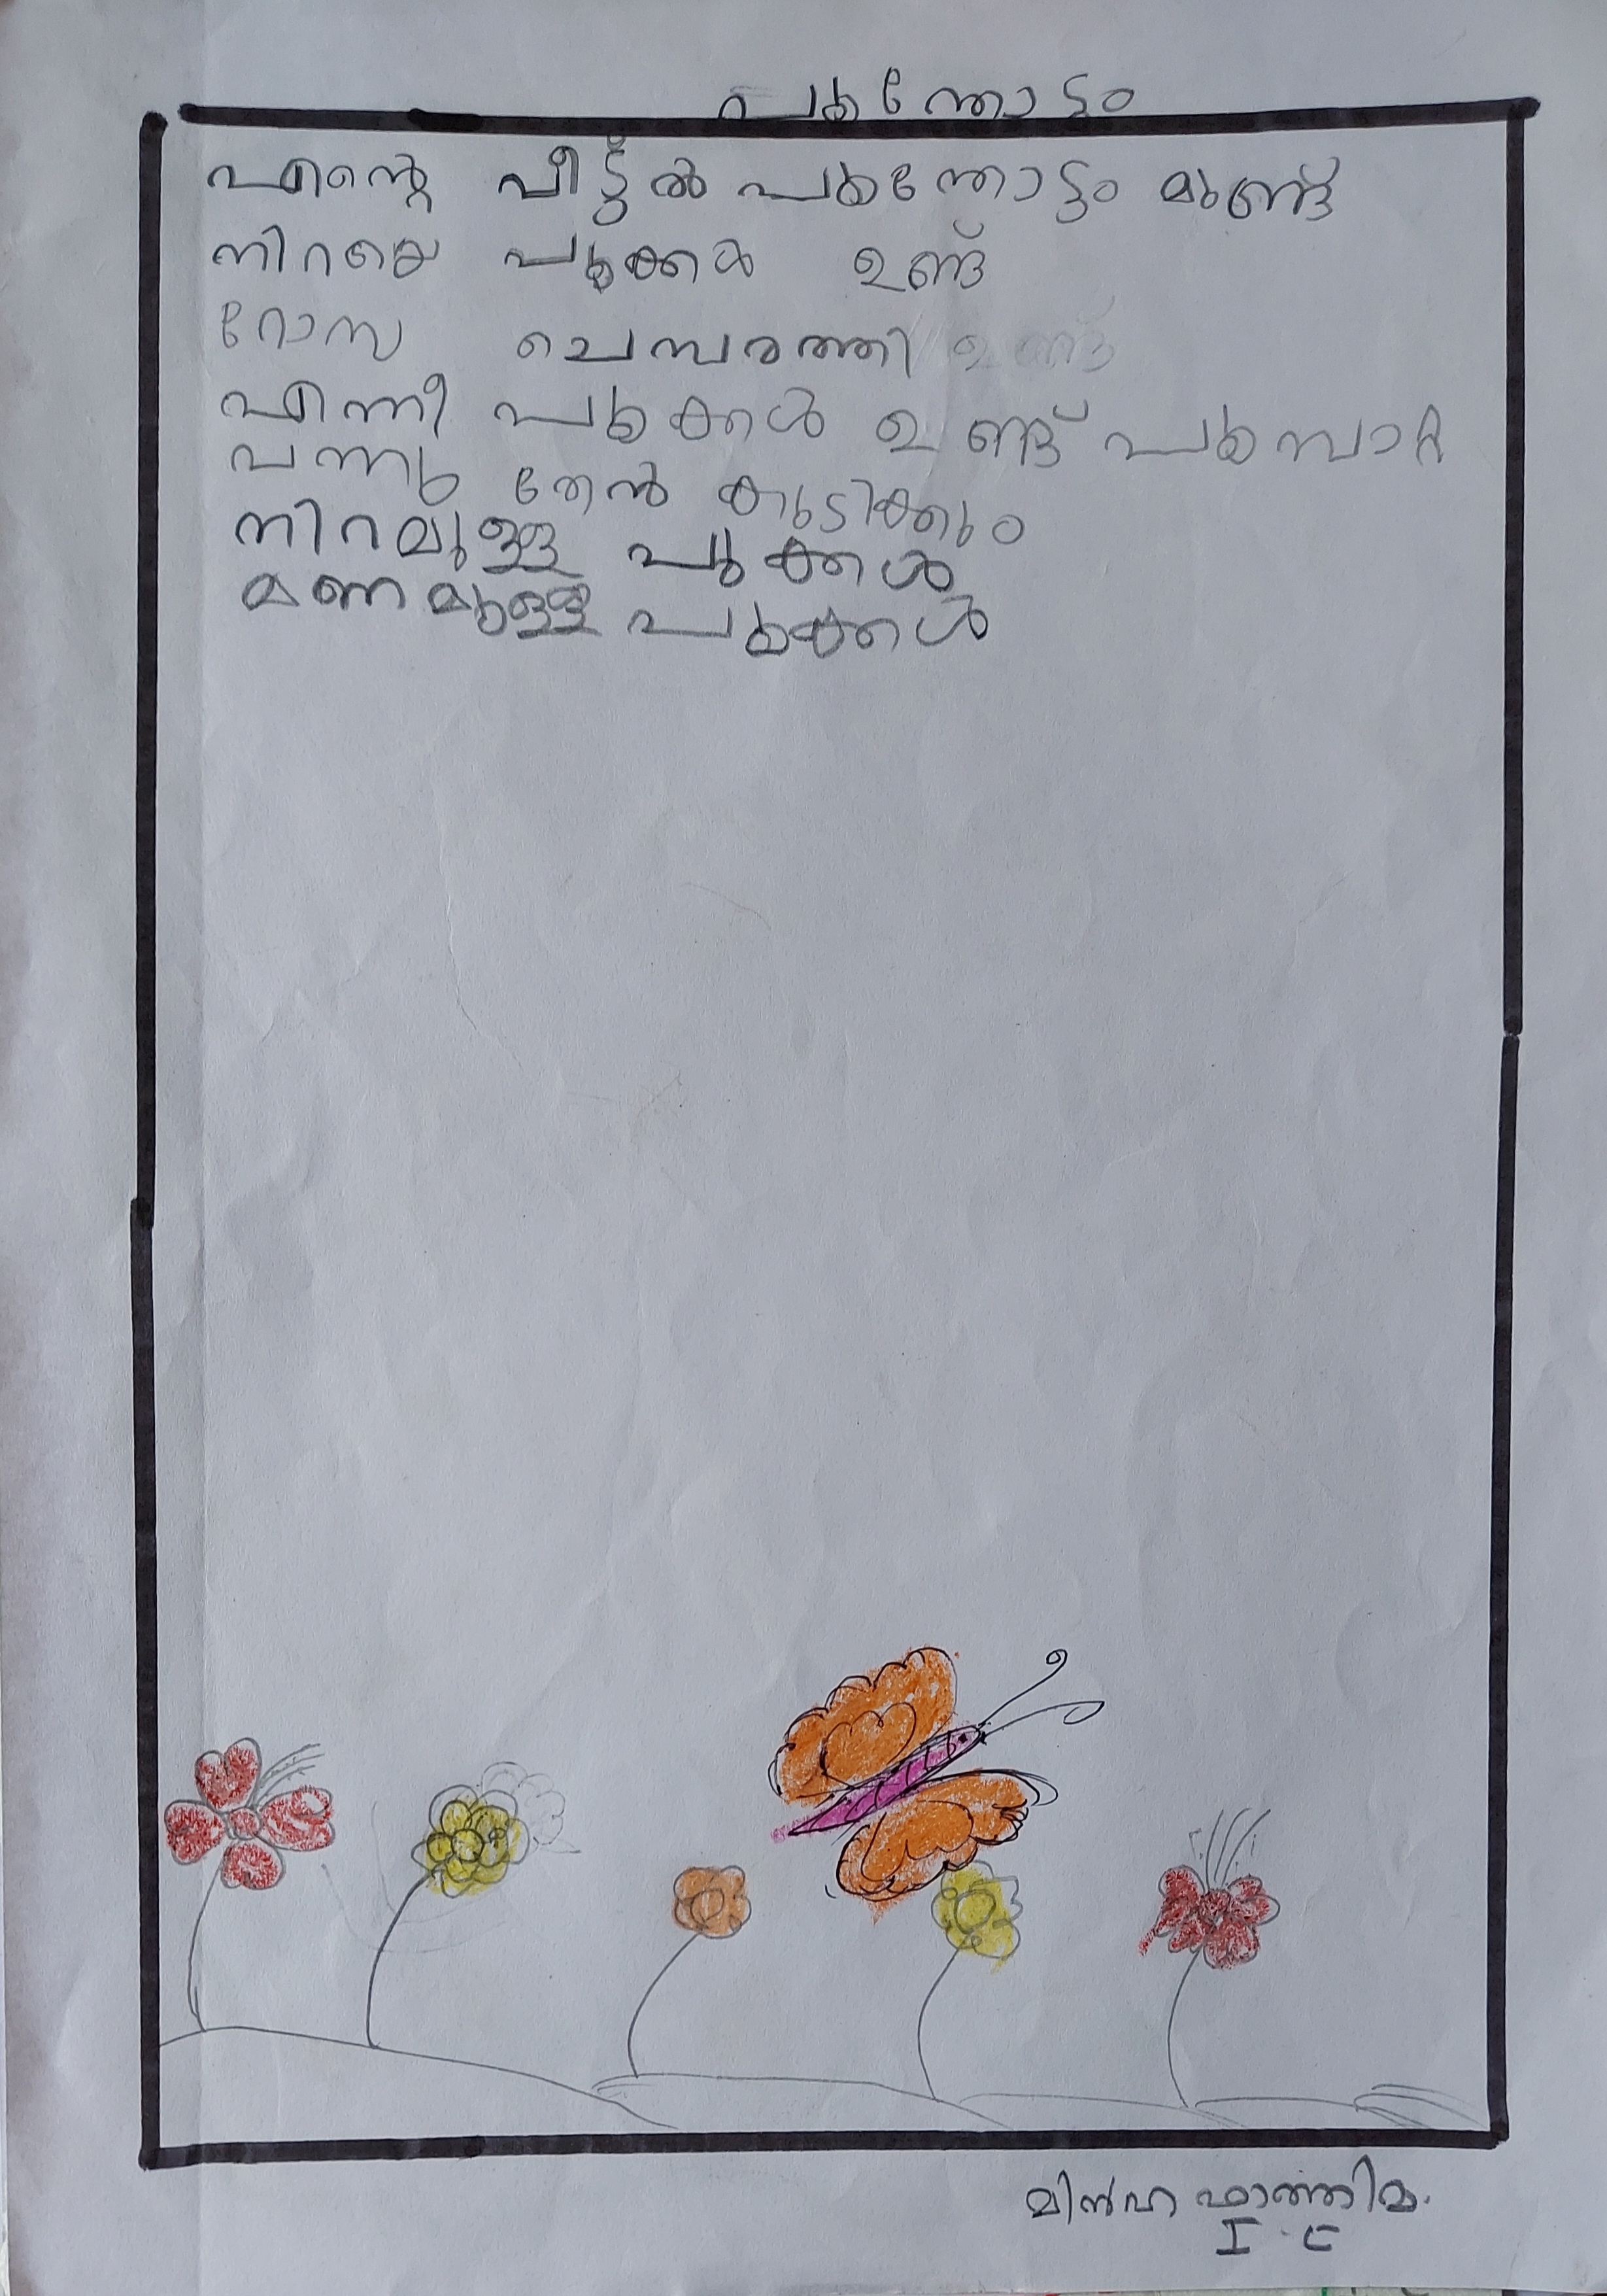 പൂന്തോട്ടം
എന്റെ വീട്ടിൽ പൂന്തോട്ടം മുണ്ട്
നിറയെ പൂക്കൾ ഉണ്ട്
റോസ ചെമ്പരത്തി ഉണ്ട്
എന്നീ പൂക്കൾ ഉണ്ട് പൂമ്പാറ്റ
വന്നു തേൻ കുടിക്കും
നിറമുള്ള പൂക്കൾ
മണമുള്ള പൂക്കൾ
മിൻഹ ഫാത്തിമ.
I C